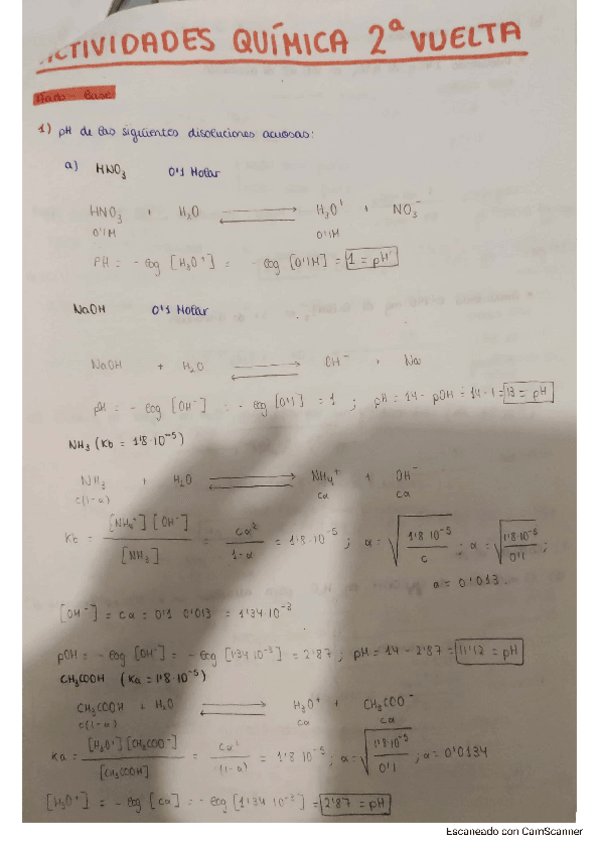 ACTIVIDADES QUÍMICA 2ª VUELTA
Ácido - Base
1) pH de las siguientes disoluciones acuosas:
a) HNO₃ 0'1 Molar
HNO₃ + H₂O ⇌ H₃O⁺ + NO₃⁻
0'1M 0'1M
pH = - log [H₃O⁺] = - log [0'1M] = 1 = pH
NaOH 0'1 Molar
NaOH + H₂O ⇌ OH⁻ + Na
pH = - log [OH⁻] = - log [0'1] = 1 ; pH = 14 - pOH = 14 - 1 = 13 = pH
NH₃ (Kb = 1'8·10⁻⁵)
NH₃ + H₂O ⇌ NH₄⁺ + OH⁻
c(1-α) cα cα
Kb = [NH₄⁺][OH⁻] / [NH₃] = cα² / 1-α = 1'8·10⁻⁵ ; α = √(1'8·10⁻⁵ / c) ; α = √(1'8·10⁻⁵ / 0'1) ;
α = 0'013.
[OH⁻] = cα = 0'1 0'013 = 1'34·10⁻³
pOH = - log [OH⁻] = - log [1'34·10⁻³] = 2'87 ; pH = 14 - 2'87 = 11'12 = pH
CH₃COOH (Ka = 1'8·10⁻⁵)
CH₃COOH + H₂O ⇌ H₃O⁺ + CH₃COO⁻
c(1-α) cα cα
Ka = [H₃O⁺][CH₃COO⁻] / [CH₃COOH] = cα² / (1-α) = 1'8·10⁻⁵ ; α = √(1'8·10⁻⁵ / 0'1) ; α = 0'0134
[H₃O⁺] = - log [cα] = - log [1'34·10⁻³] = 2'87 = pH
Escaneado con CamScanner